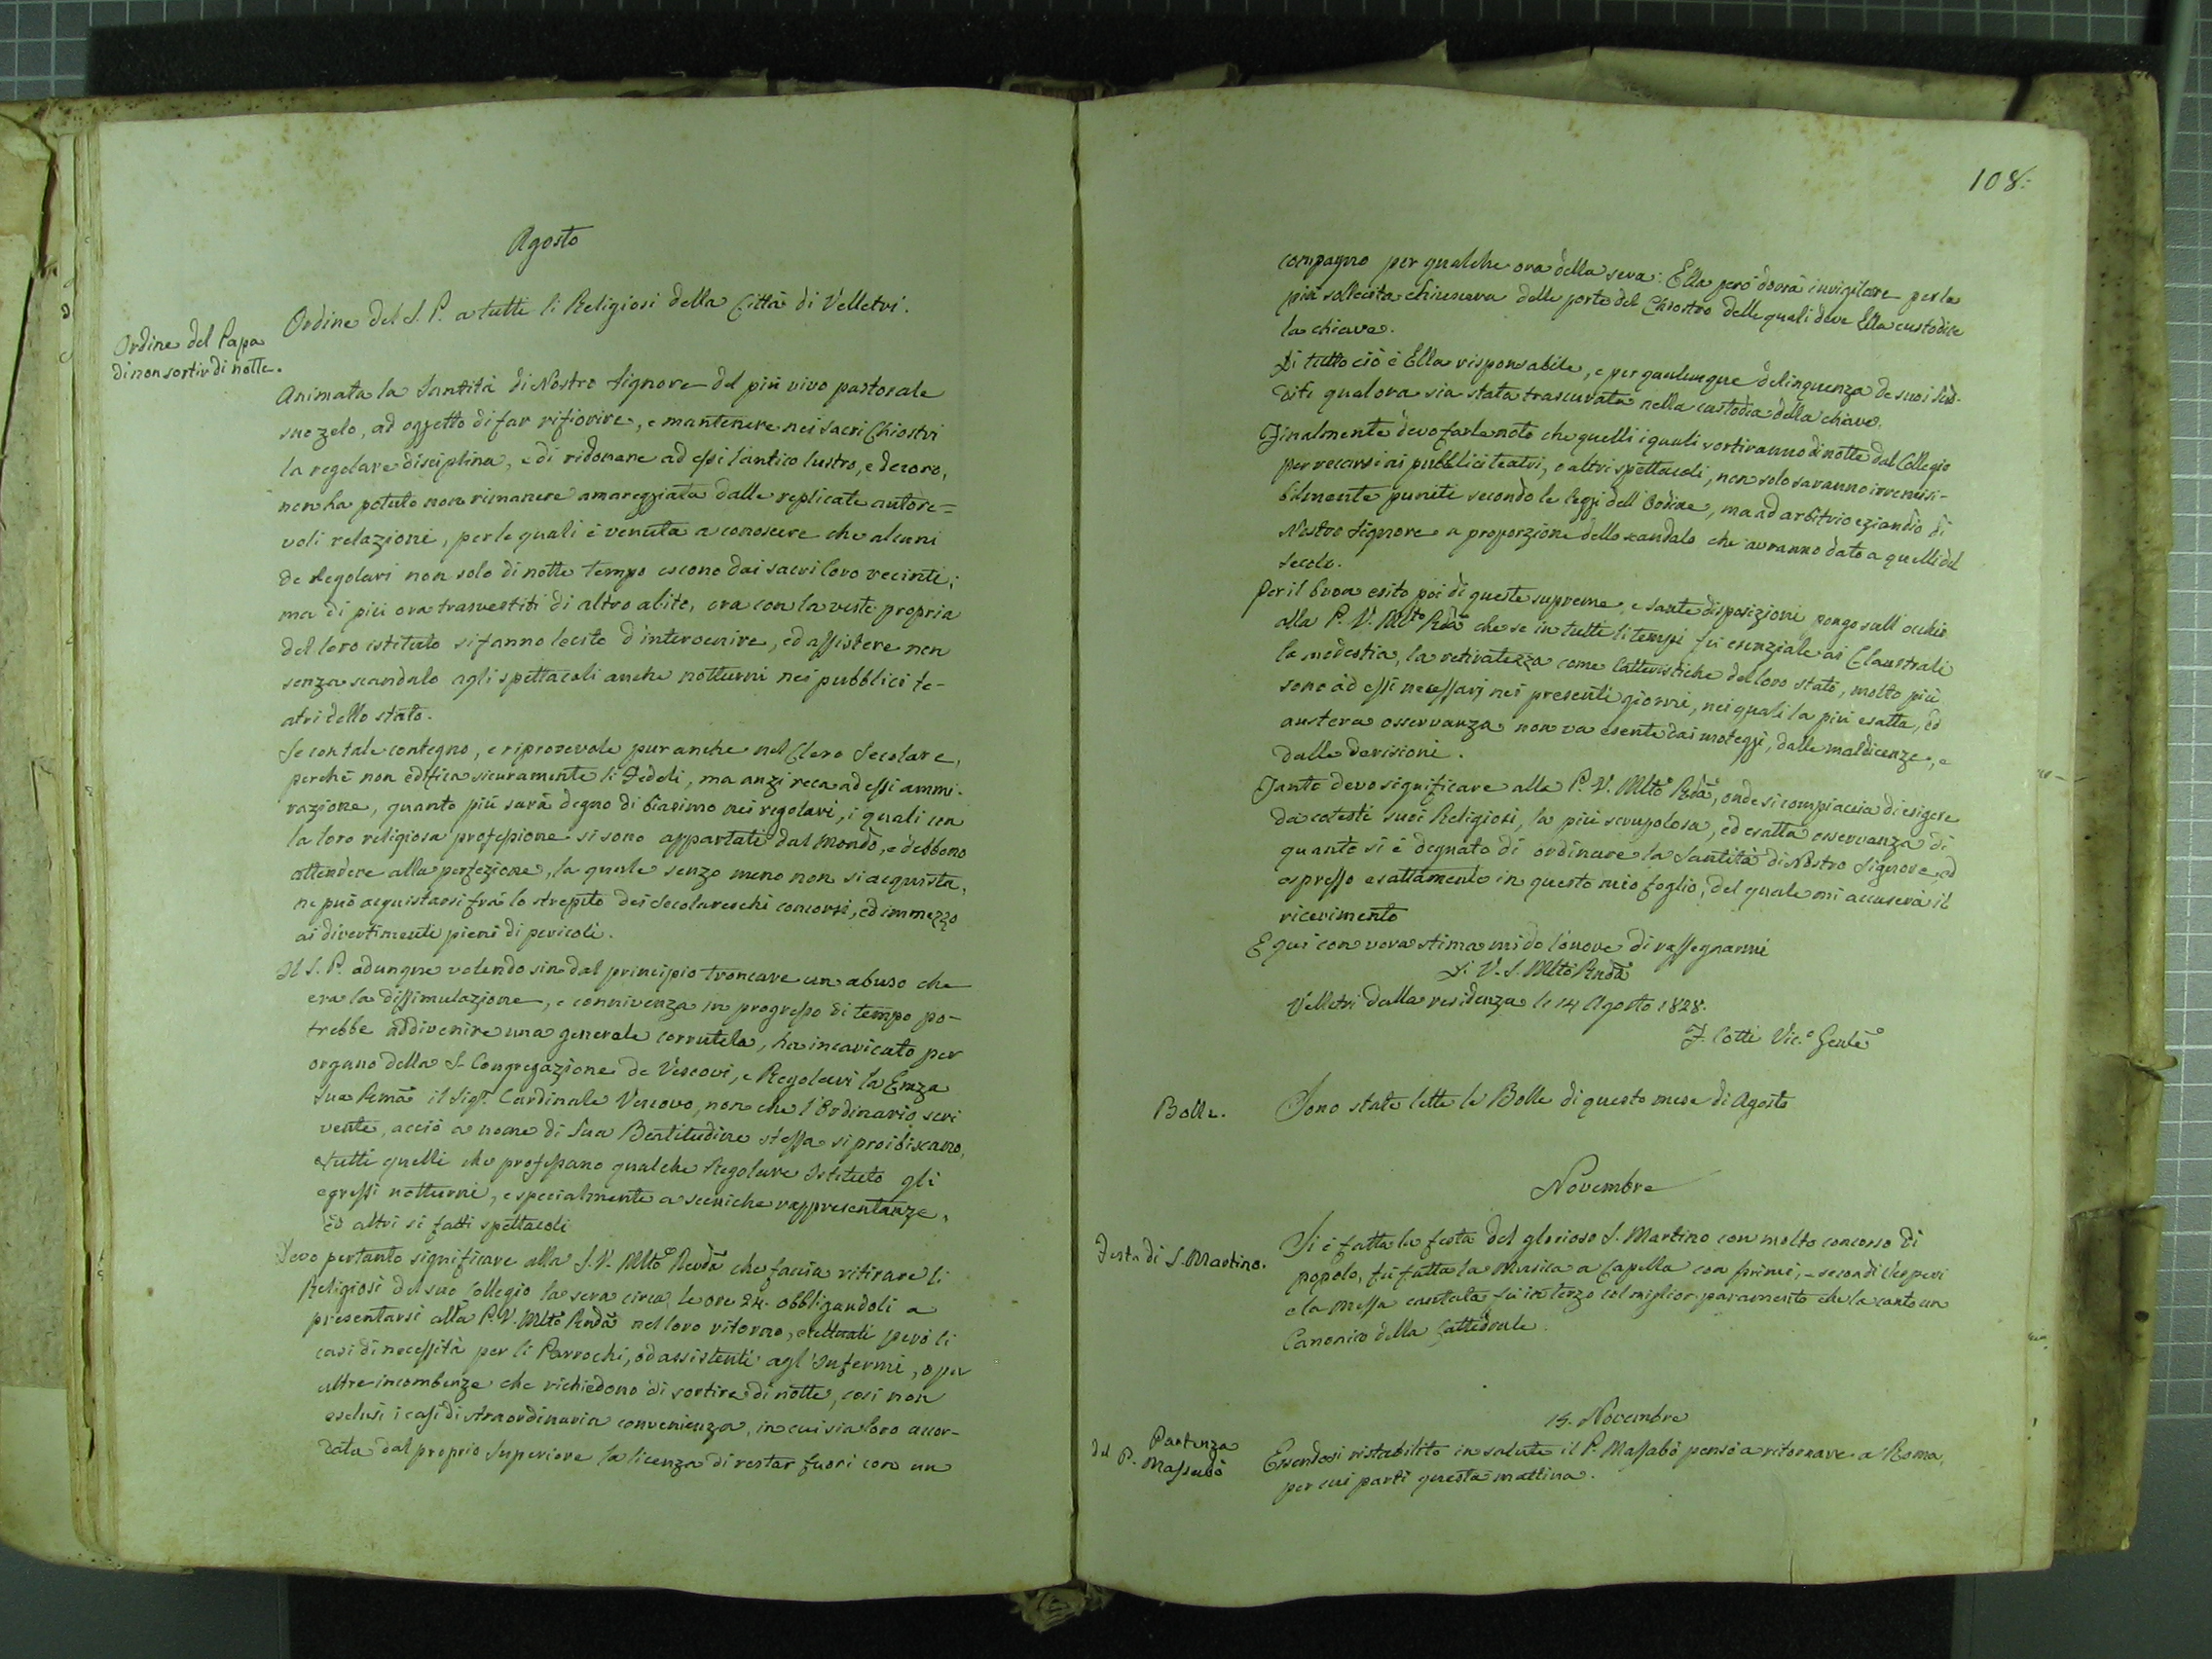 Agosto
Ordine del S. P. a tutti li Religiosi della Città di Velletri.
Ordine del Papa
di non sortir di notte.
Animata la Santità di Nostro Signore del più vivo pastorale
suo zelo, ad oggetto di far rifiorire, e mantenere nei sacri Chiostri
la regolare disciplina, e di ridonare ad essi l'antico lustro, e decoro,
non ha potuto non rimanere amareggiata dalle replicate autore=
voli relazioni, per le quali è venuta a conoscere che alcuni
de Regolari non solo di notte tempo escono dai sacri loro recinti;
ma di più ora trasvestiti di altro abito, ora con la veste propria
del loro istituto si fanno lecito d'intervenire, ed assistere non
senza scandalo agli spettacoli anche notturni nei pubblici te-
atri dello stato.
Se con tale contegno, e riprovevole pur anche nel Clero Secolare,
perchè non edifica sicuramente li Fedeli, ma anzi reca ad essi ammi-
razione, quanto più sarà degno di biasimo nei regolari, i quali con
la loro religiosa professione si sono appartati dal mondo, e debbono
attendere alla perfezione, la quale senza meno non si acquista,
ne può acquistarsi frà lo strepito dei Secolareschi concorsi, ed immezzo
ai divertimenti pieni di pericoli.
Il S. P. adunque volendo sin dal principio troncare un abuso che
era la dissimulazione, e connivenza in progresso di tempo po-
trebbe addivenire una generale corrutela, ha incaricato per
organo della S. Congregazione de Vescovi, e Regolari la Emza
Sua Rema il Sigr. Cardinale Vescovo, non che l'Ordinario scri
vente, acciò a nome di Sua Beatitudine stessa si proibiscano,
a tutti quelli che professano qualche Regolare Istituto gli
egressi notturni, e specialmente a sceniche rappresentanze,
ed altri si fatti spettacoli
Devo pertanto significare alla S. V. Mlto Revda che faccia ritirare li
Religiosi del suo Collegio la sera circa le ore 24. obbligandoli a
presentarsi alla P. V. Mlto Rnda nel loro ritorno, eccettuati però li
casi di necessità per li Parrochi, od assistenti agl'Infermi, o per
altre incombenze che richiedono di sortire di notte, così non
esclusi i casi di straordinaria convenienza, in cui sia loro accor-
data dal proprio Superiore la licenza di restar fuori con un
108:
compagno per qualche ora della sera: Ella però dovrà invigilare per la
più sollecita chiusura delle porte del Chiostro delle quali deve Ella custodire
la chiave.
Di tutto ciò è Ella risponsabile, e per qualunque delinquenza de suoi sud-
diti qualora sia stata trascurata nella custodia della chiave.
Finalmente devo farle noto che quelli i quali sortiranno di notte dal Collegio
per recarsi ai pubblici teatri, o altri spettacoli, non solo saranno irremisi-
bilmente puniti secondo le leggi dell'Ordine, ma ad arbitrio eziandio di
Nostro Signore a proporzione dello scandalo che avranno dato a quelli del
secolo.
Per il buon esito poi di queste supreme, e sante disposizioni pongo sull'occhio
alla P. V. Mlto Rda che se in tutti li tempi fu esenziale ai Claustrali
la modestia, la ritiratezza come catteristiche del loro stato, molto più
sono ad essi necessarj nei presenti giorni, nei quali la più esatta, ed
austera osservanza non va esente dai moteggi, dalle maldicenze, e
dalle derisioni.
Tanto devo significare alla P. V. Mlto Rda, onde si compiaccia di esigere
da cotesti suoi Religiosi, la più scrupolosa, ed esatta osservanza di
quanto si è degnato di ordinare la Santità di Nostro Signore, ed
espresso esattamente in questo mio foglio, del quale mi accuserà il
ricevimento
E qui con vera stima mi do l'onore di rassegnarmi
D. V. S. Mlto Rnda
Velletri dalla residenza li 14 Agosto 1828.
F. Cotti Vic.o Genle
Bolle.
Sono state lette le Bolle di questo mese di Agosto
Novembre
Festa di S. Martino.
Si è fatta la festa del glorioso S. Martino con molto concorso di
popolo, fù fatta la Musica a Capella con primi, e secondi Vesperi
e la Messa cantata fu in terzo col miglior paramento che la canto un
Canonico della Cattedrale.
15. Novembre
Partenza
del P. Massabò
Essendosi ristabilito in salute il P. Massabò pensò a ritornare a Roma,
per cui partì questa mattina.